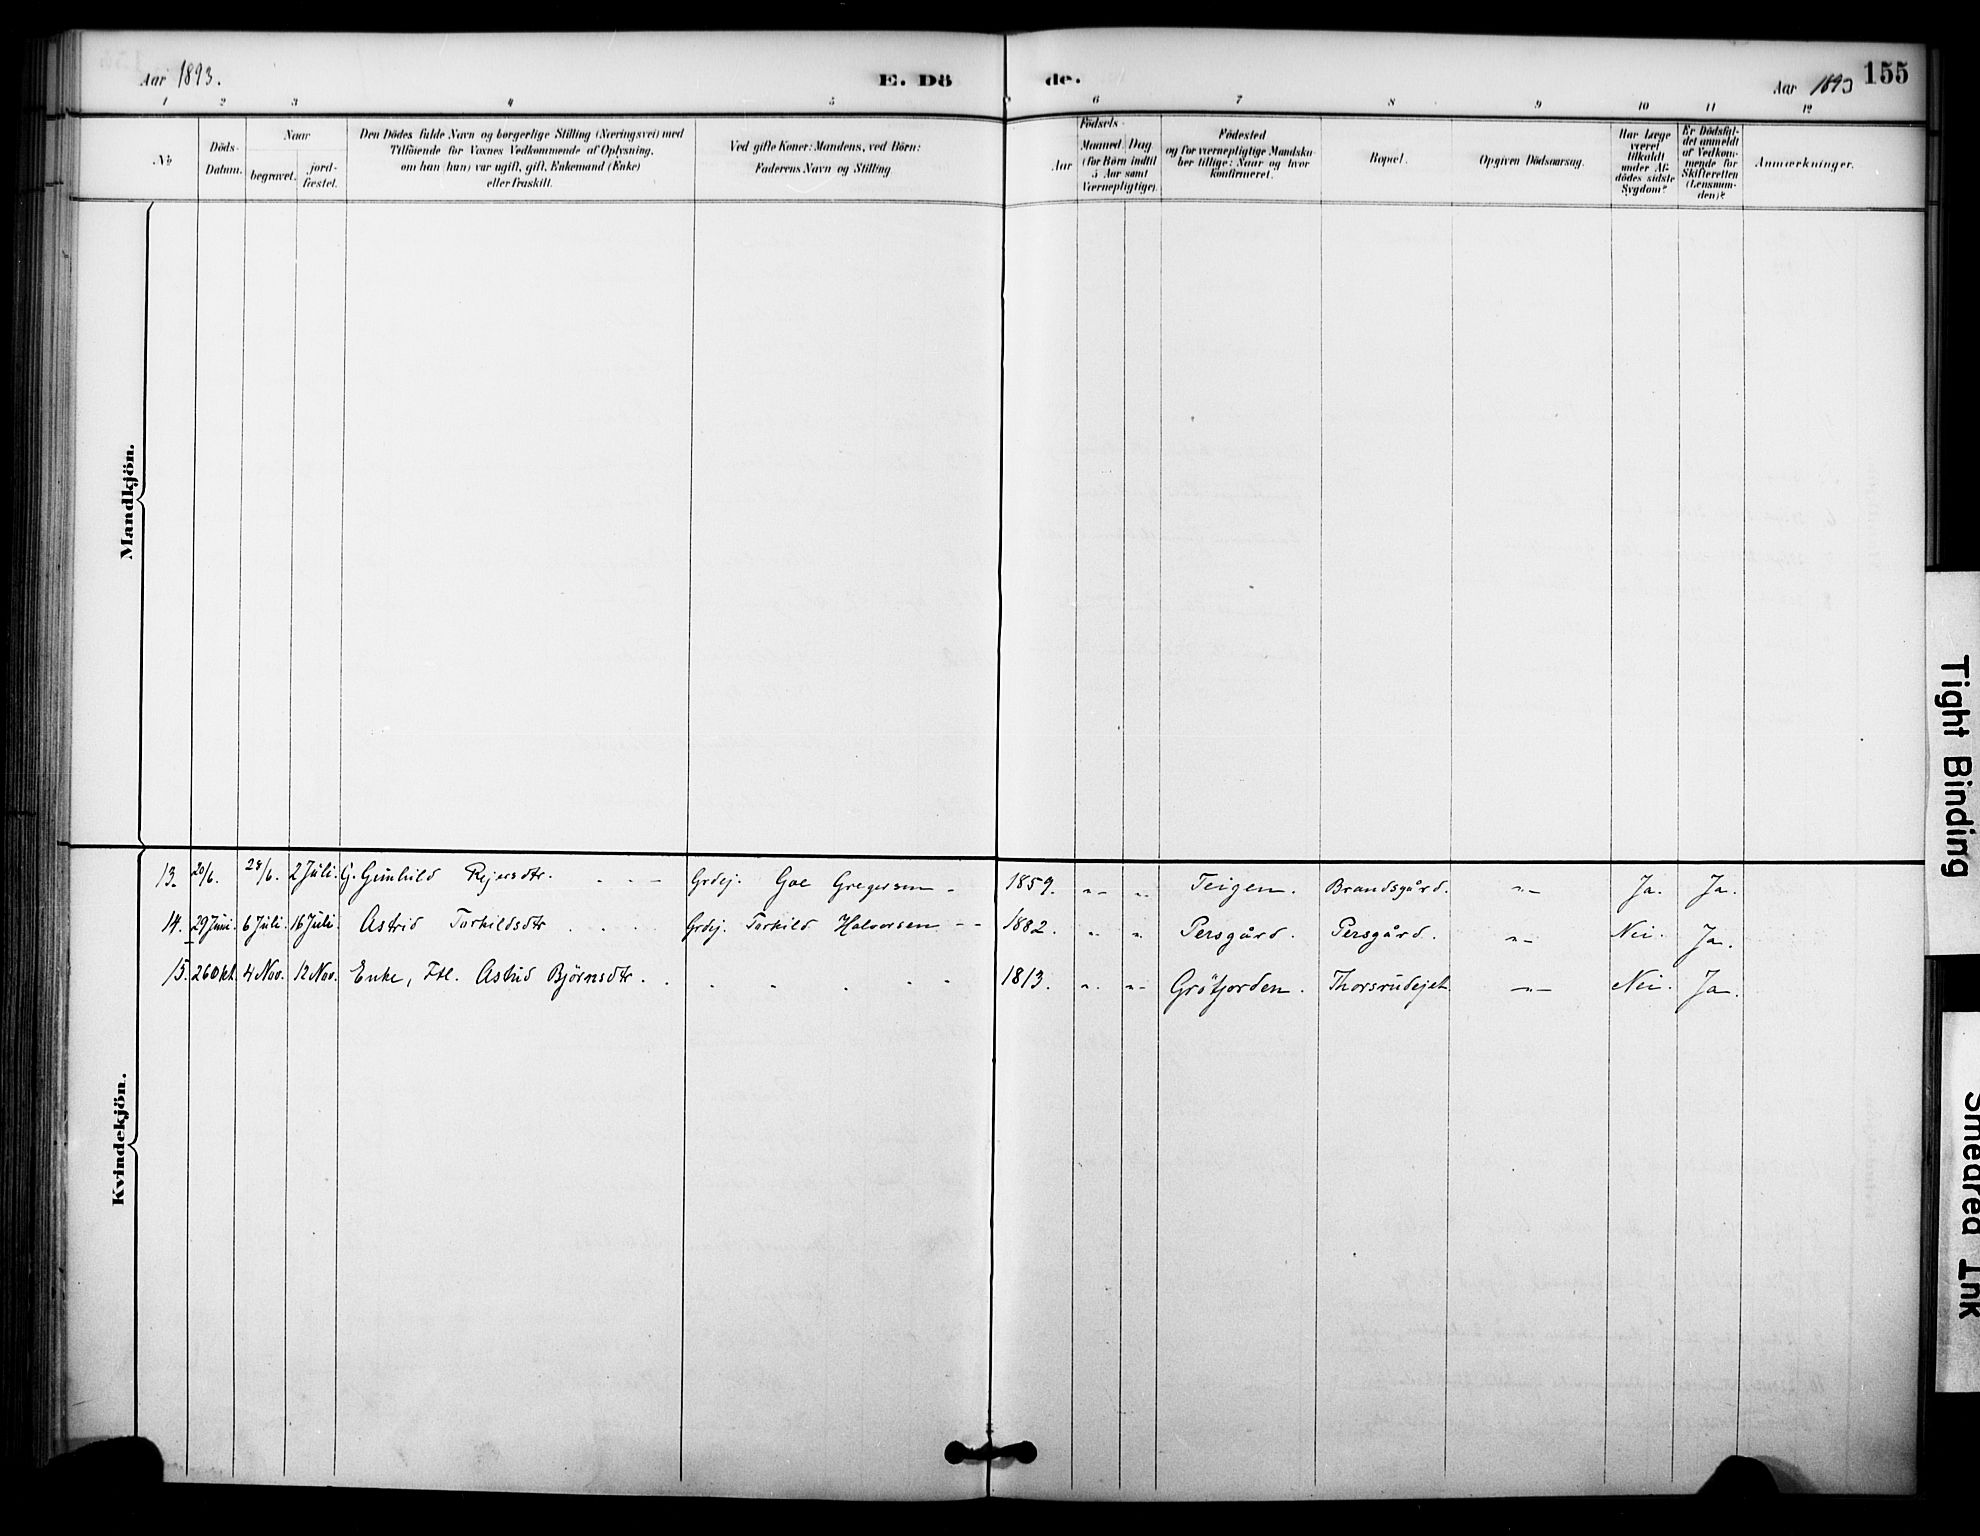 Aar 1893.
E. Dö
de.
Aar 1893
155
1 2 3 4 5 6 7 8 9 10 11 12
No
Döds-
Datum.
Naar
begravet.
jord-
fæstet.
Den Dödes fulde Navn og borgerlige Stilling (Næringsvei) med
Tilföiende for Voxnes Vedkommende af Oplysning,
om han (hun) var ugift, gift, Enkemand (Enke)
eller fraskilt.
Ved gifte Koner: Mandens, ved Börn:
Faderens Navn og Stilling
Födsels-
Aar
Maaned. Dag
(for Börn indtil
5 Aar samt
Værnepligtige).
Födested
og for værnepligtige Mandska-
ber tillige: Naar og hvor
konfirmeret.
Bopæl.
Opgiven Dödsaarsag.
Har Læge
været
tilkaldt
under Af-
dödes sidste
Sygdom?
Er Dödsfal-
det anmeldt
af Vedkom-
mende for
Skifteretten
(Lensman-
den)?
Anmærkninger.
Mandkjön.
Kvindekjön.
13. 20/6. 28/6. 2 Juli. G. Gunhild Rejersdtr. - - - Grdej. Goe Gregersen - 1859. -"- -"- Teigen. Brandsgård. -"- Ja. Ja.
14. 29 Juni. 6 Juli. 16 Juli. Astrid Torkildsdtr . . . . Grdej. Torkild Halvorsen -- 1882. " " Persgård. Persgård. -"- Nei. Ja.
15. 26 Okt 4 Nov. 12 Nov. Enke, Ftl. Astrid Bjørnsdtr. . . . . . . 1813. -"- -"- Grötjorden. Thorsrudejet -"- Nei. Ja.
Tight Binding
Smeared Ink